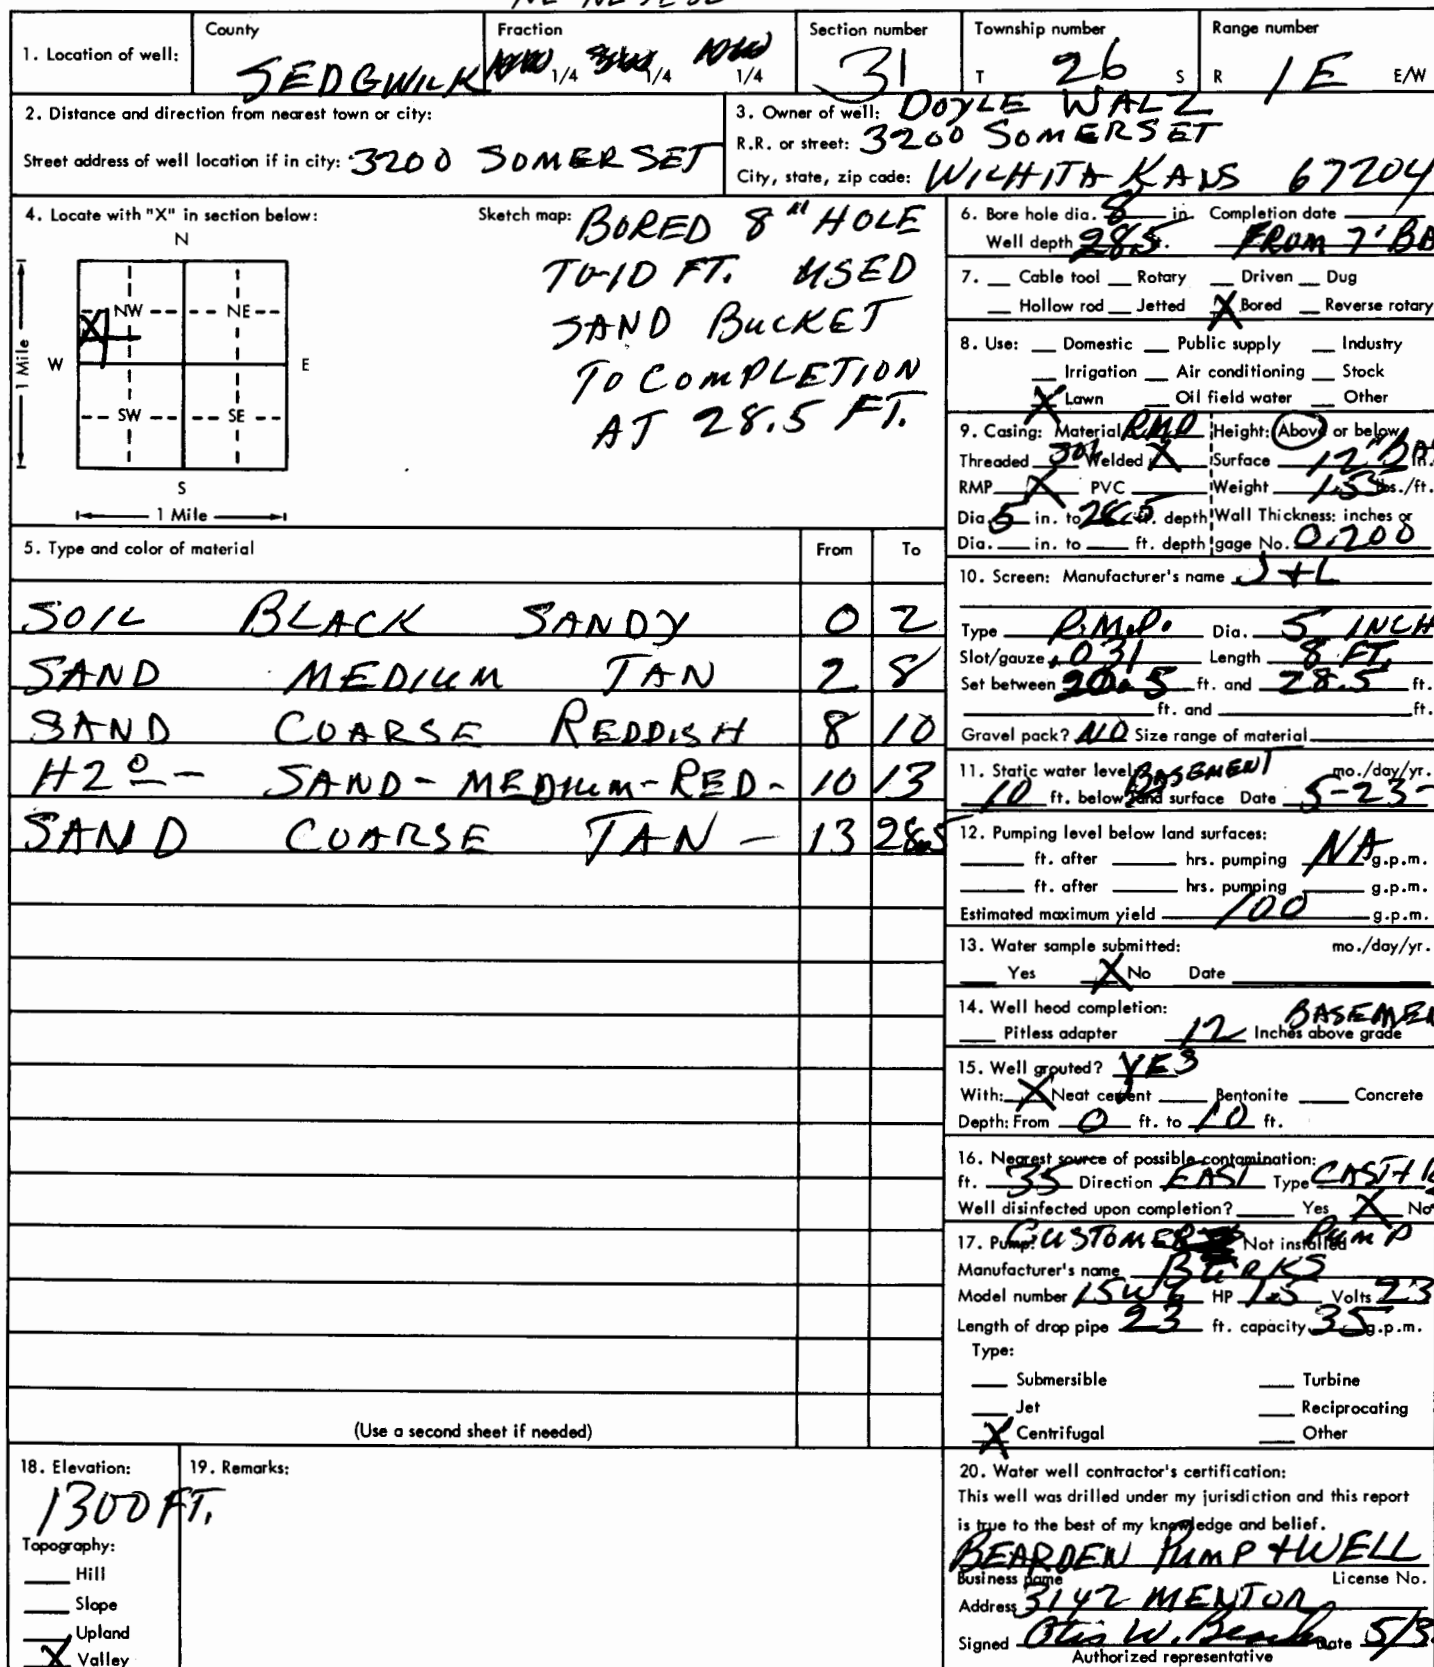 County Fraction Section number Township number Range number
1. Location of well: SEDGWICK 1/4 1/4 1/4 31 T 26 S R 1E E/W
2. Distance and direction from nearest town or city:
Street address of well location if in city: 3200 SOMERSET
3. Owner of well: DOYLE WALZ
R.R. or street: 3200 SOMERSET
City, state, zip code: WICHITA KANS 67204
4. Locate with "X" in section below:
N
NW NE
W E
SW SE
S
1 Mile
1 Mile
X
Sketch map: BORED 8" HOLE
TO 10 FT. USED
SAND BUCKET
TO COMPLETION
AT 28.5 FT.
5. Type and color of material From To
SOIL BLACK SANDY 0 2
SAND MEDIUM TAN 2 8
SAND COARSE REDDISH 8 10
H2O - SAND - MEDIUM - RED - 10 13
SAND COARSE TAN - 13 28.5
(Use a second sheet if needed)
6. Bore hole dia. 8 in. Completion date
Well depth 28.5 ft. FROM 7' BA
7. Cable tool Rotary Driven Dug
Hollow rod Jetted X Bored Reverse rotary
8. Use: Domestic Public supply Industry
Irrigation Air conditioning Stock
X Lawn Oil field water Other
9. Casing: Material RMP Height: Above or below
Threaded Welded X Surface 12" BA in.
RMP X PVC Weight 1.55 lbs./ft.
Dia. 5 in. to 28.5 ft. depth Wall Thickness: inches or
Dia. in. to ft. depth gage No. 0.200
10. Screen: Manufacturer's name J+L
Type R.M.P. Dia. 5 INCH
Slot/gauze .031 Length 8 FT.
Set between 20.5 ft. and 28.5 ft.
ft. and ft.
Gravel pack? NO Size range of material
11. Static water level: BASEMENT mo./day/yr.
10 ft. below land surface Date 5-23-
12. Pumping level below land surfaces:
ft. after hrs. pumping NA g.p.m.
ft. after hrs. pumping g.p.m.
Estimated maximum yield 100 g.p.m.
13. Water sample submitted: mo./day/yr.
Yes X No Date
14. Well head completion: BASEMEN
Pitless adapter 12 Inches above grade
15. Well grouted? YES
With: X Neat cement Bentonite Concrete
Depth: From 0 ft. to 10 ft.
16. Nearest source of possible contamination:
ft. 35 Direction EAST Type CAST
Well disinfected upon completion? Yes X No
17. Pump: CUSTOMERS PUMP Not installed
Manufacturer's name BURKS
Model number HP 1.5 Volts 23
Length of drop pipe 23 ft. capacity 35 g.p.m.
Type:
Submersible Turbine
Jet Reciprocating
X Centrifugal Other
18. Elevation:
1300 FT.
Topography:
Hill
Slope
Upland
X Valley
19. Remarks:
20. Water well contractor's certification:
This well was drilled under my jurisdiction and this report
is true to the best of my knowledge and belief.
BEARDEN PUMP + WELL
Business name License No.
Address 3142 MENTOR
Signed Otis W. Bearden Date 5/3
Authorized representative